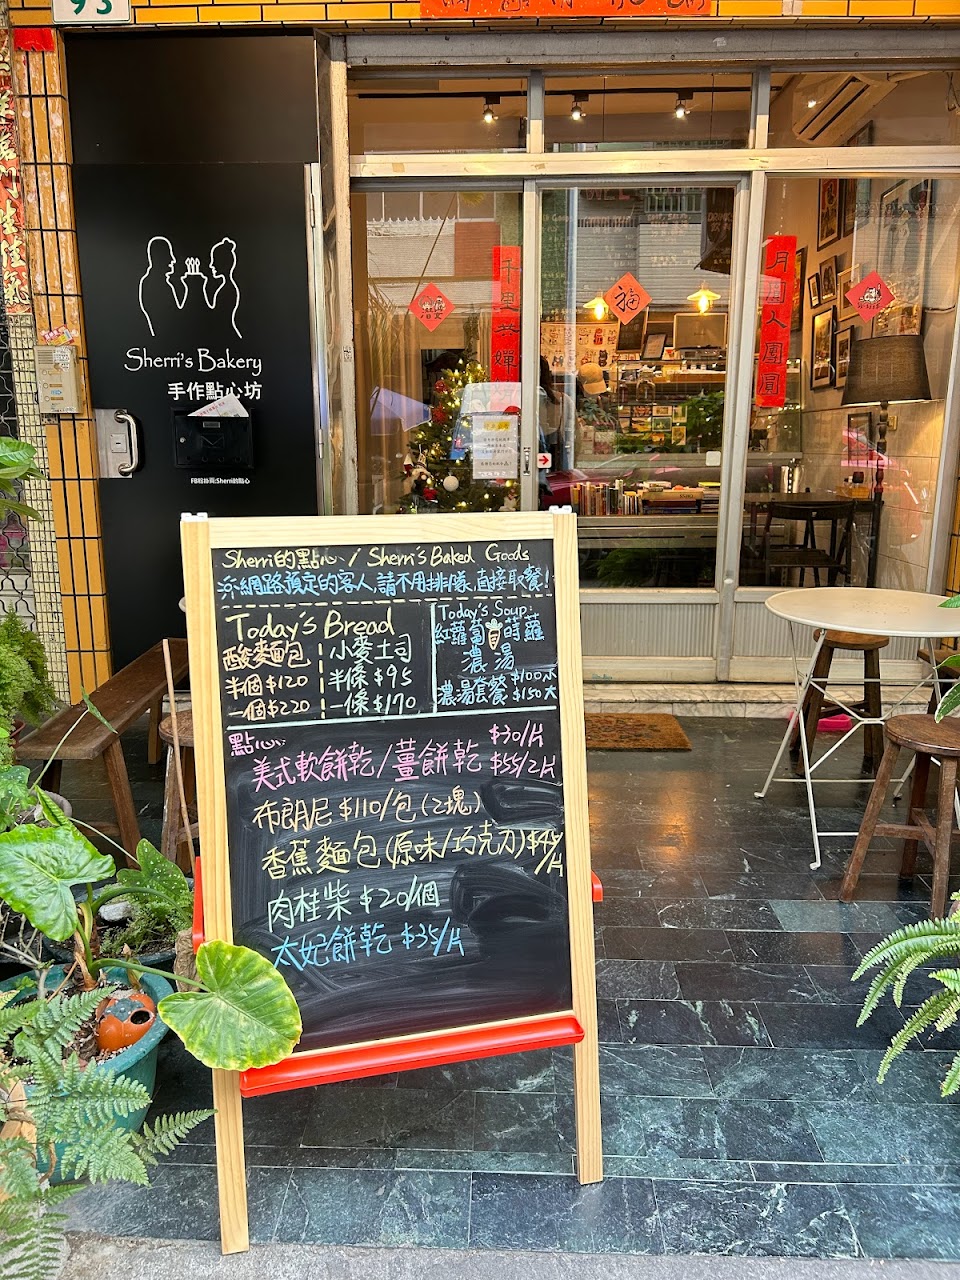 93
Sherri's Bakery
手作點心坊
FB粉絲頁:Sherri的點心
千里共嬋
福
月圓人團圓
Sherri的點心 / Sherri's Baked Goods
※網路預定的客人,請不用排隊,直接取餐!
Today's Bread
酸麵包
半個$120
一個$220
小麥土司
半條$95
一條$170
Today's Soup:
紅蘿蔔蒔蘿
濃湯
$100小
濃湯套餐 $150大
點心:
$30/片
美式軟餅乾/薑餅乾 $55/2片
布朗尼 $110/包(2塊)
香蕉麵包(原味/巧克力)$45/片
肉桂柴 $20/個
太妃餅乾 $35/片